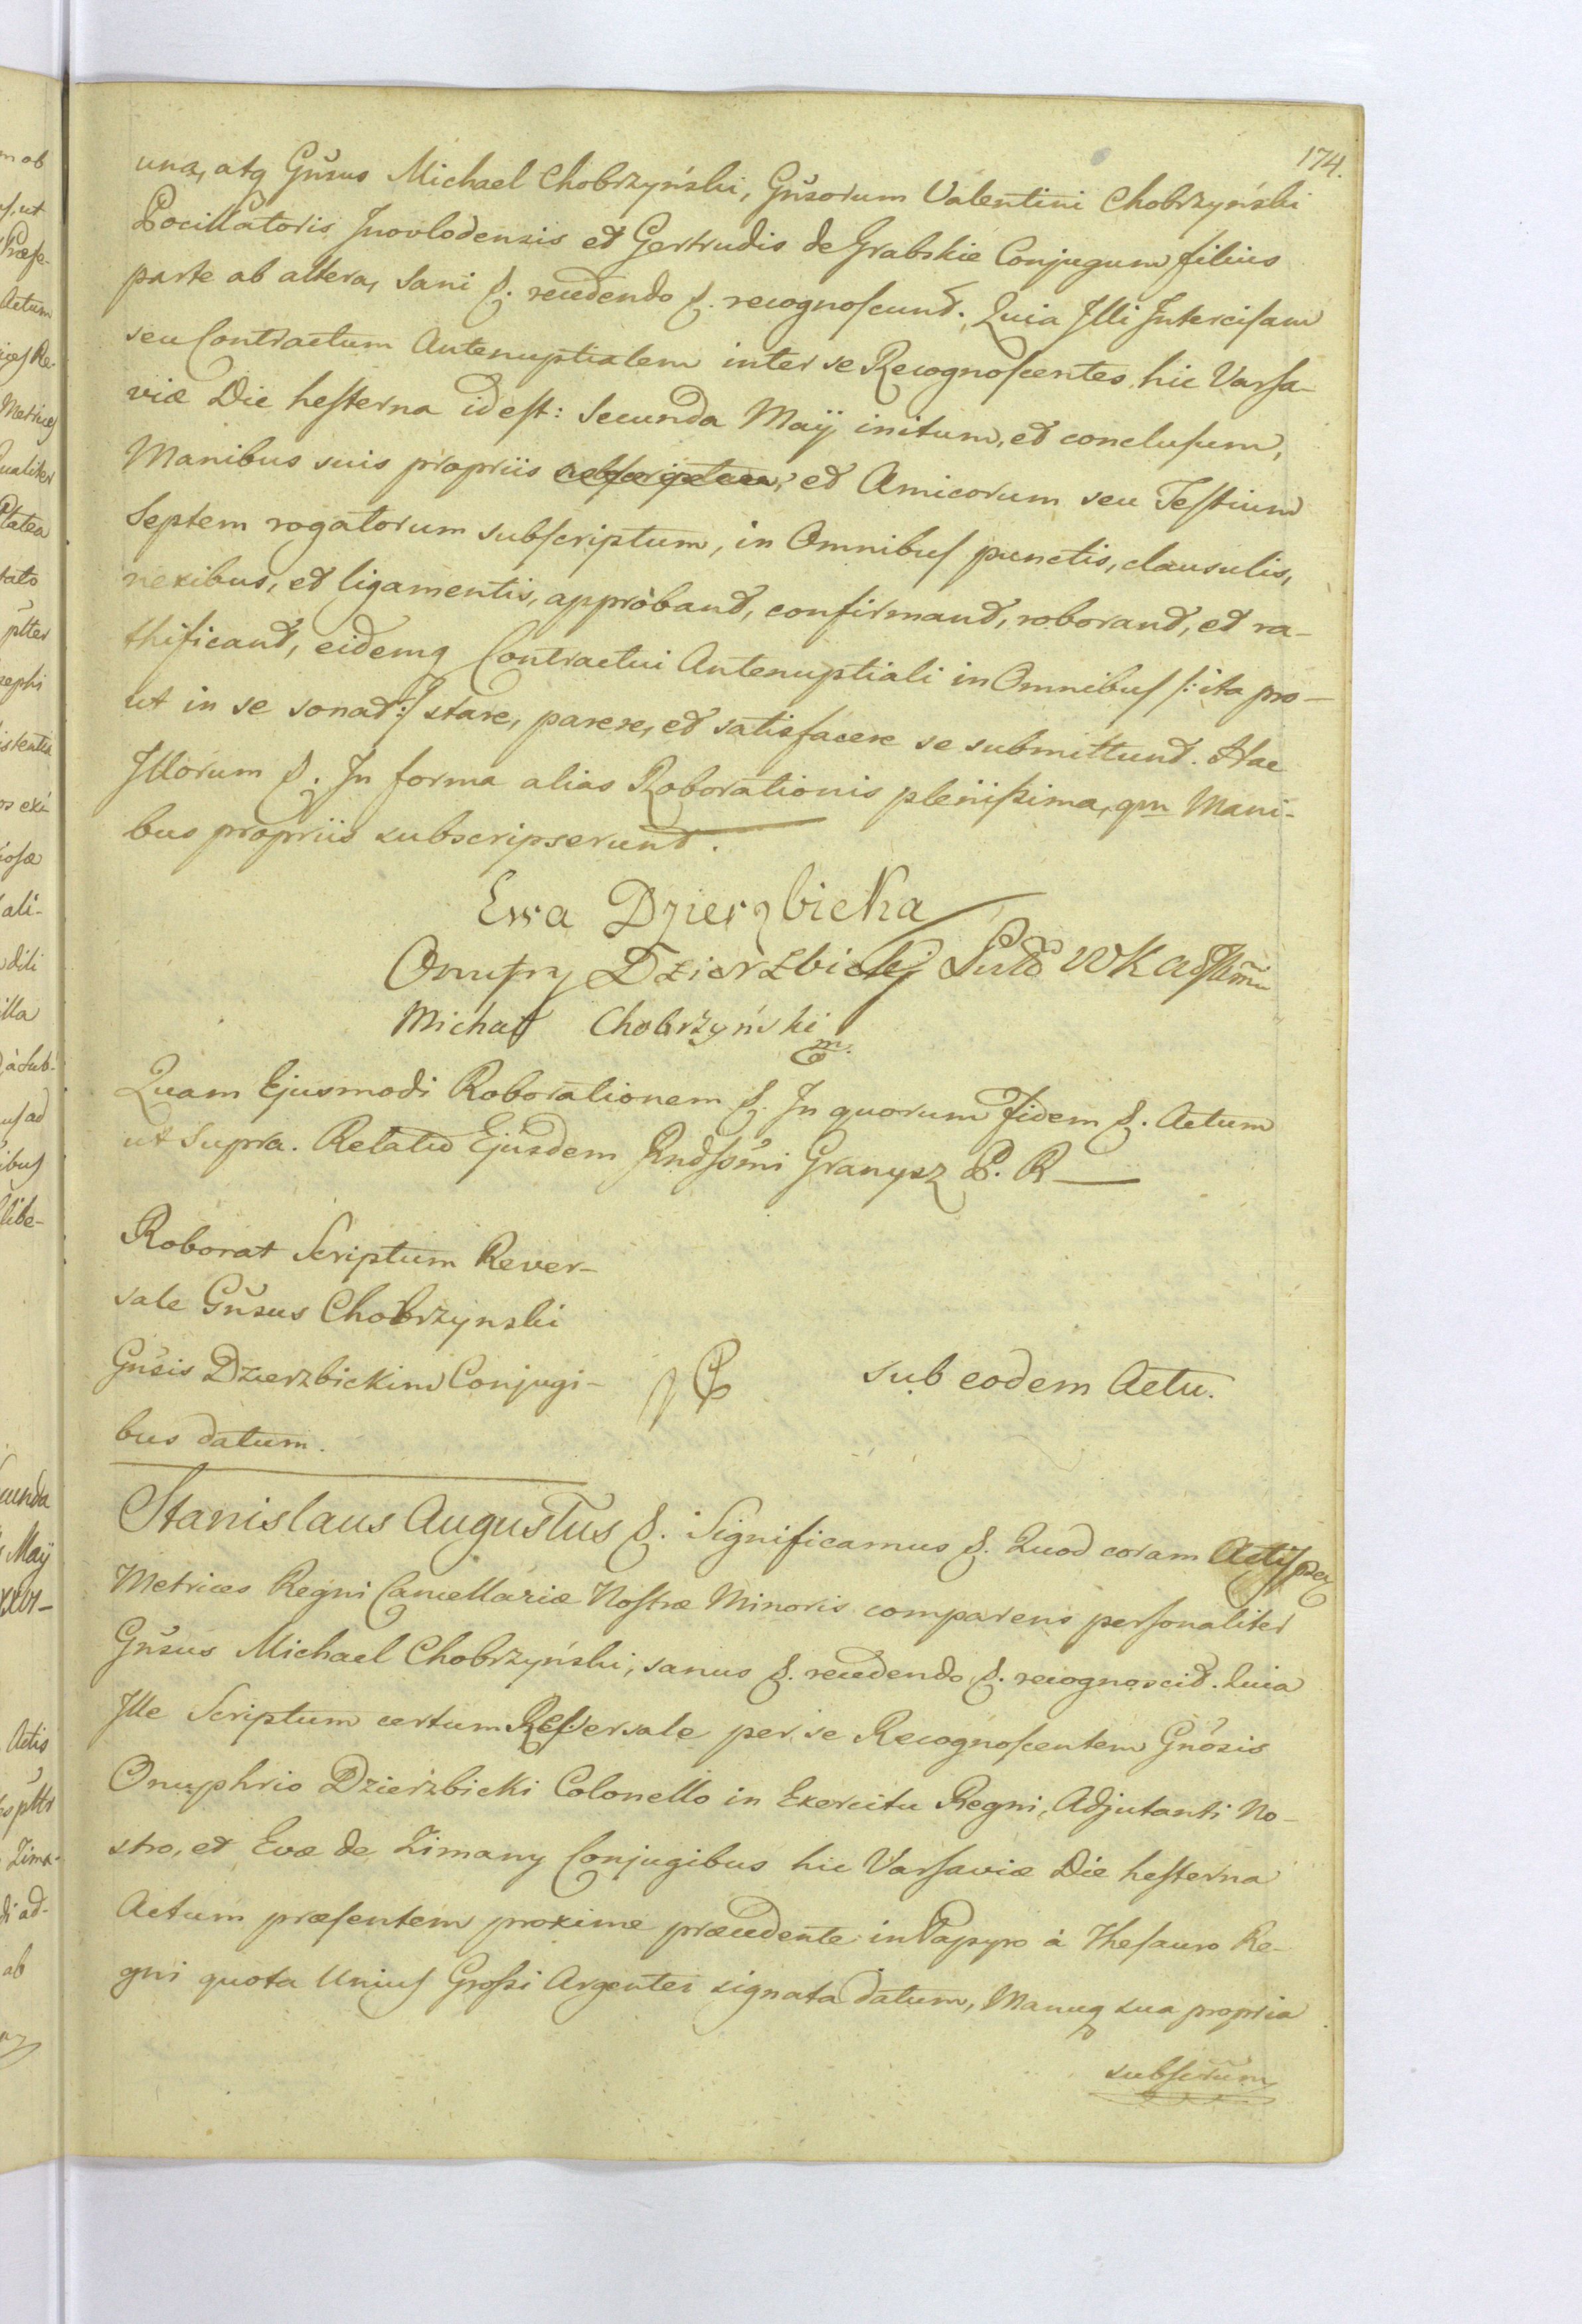 174.
una, atq Gnsus Michael Chobrzyński, Gnsorum Valentini Chobrzyński
Pocillatoris Inovlodensis et Gertrudis de Grabskie Conjugum filius
parte ab altera, sani &. recedendo &. recognoscunt. Quia Illi Intercisam
seu Contractum Antenuptialem inter se Recognoscentes hic Varsa-
viæ Die hesterna id est: Secunda Maÿ initum, et conclusum,
Manibus suis propriis et Amicorum seu Testium
Septem rogatorum subscriptum, in Omnibus punctis, clausulis,
nexibus, et ligamentis, approbant, confirmant, roborant, et ra-
thificant, eidemq Contractui Antenuptiali in Omnibus /: ita pro-
ut in se sonat :/ stare, parere, et satisfacere se submittunt. Hac
Illorum &. In forma alias Roborationis plenissima, qm Mani-
bus propriis subscripserunt.
Ewa Dzierzbicka
Onufry Dzierzbicki WKa
Michał Chobrzyński
mp.
Quam Ejusmodi Roborationem &. In quorum Fidem &. Actum
ut Supra. Relatio Ejusdem Rndssmi Granysz P. R
Roborat Scriptum Rever-
sale Gnsus Chobrzynski
Gnsis Dzierzbickim Conjugi-
bus datum.
sub eodem Actu.
Stanislaus Augustus &. Significamus &. Quod coram Actis
Metrices Regni Cancellariæ Nostræ Minoris comparens personaliter
Gnsus Michael Chobrzyński, sanus &. recedendo &. recognoscit. Quia
Ille Scriptum certum Reversale per se Recognoscentem Gnosis
Onuphrio Dzierżbicki Colonello in Exercitu Regni, Adjutanti No-
stro, et Evæ de Zimany Conjugibus hic Varsaviæ Die hesterna
Actum præsentem proxime præcedente in Papyro à Thesauro Re-
gni quota Unius Grossi Argentei signata datum, Manuq sua propria
subscrum